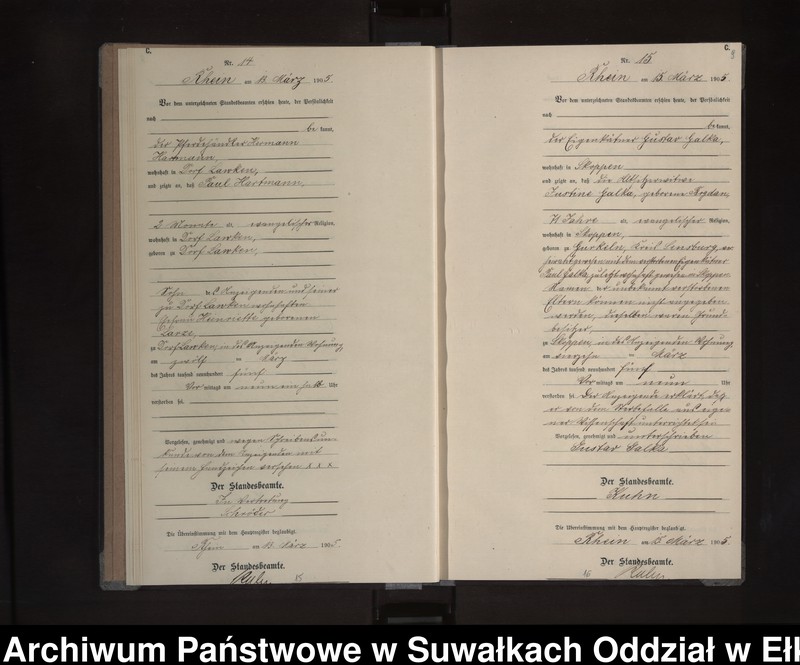 C.
Nr. 14
Rhein am 13 März 1905.
Vor dem unterzeichneten Standesbeamten erschien heute, der Persönlichkeit
nach
bekannt,
der Pferdehändler Hermann
Hartmann,
wohnhaft in Dorf Lawken,
und zeigte an, daß Paul Hartmann,
2 Monate a. evangelischer Religion,
wohnhaft in Dorf Lawken,
geboren zu Dorf Lawken,
Sohn des Anzeigenden und seiner
zu Dorf Lawken
Ehefrau Heinriette geborenen
zu Dorf Lawken, in des Anzeigenden Wohnung
am zwölften März
des Jahres tausend neunhundert fünf
Vormittags um neun ein halb Uhr
verstorben sei.
Vorgelesen, genehmigt und wegen Schreibensun-
kunde von dem Anzeigenden mit
seinem Handzeichen versehen x x x
Der Standesbeamte.
In Vertretung
Schröder
Die Übereinstimmung mit dem Hauptregister beglaubigt.
Rhein am 13 März 1905
Der Standesbeamte.
Kuhn
15
C.
Nr. 15.
Rhein am 15 März 1905.
Vor dem unterzeichneten Standesbeamten erschien heute, der Persönlichkeit
nach
bekannt,
der Eigenkätner Gustav Galka,
wohnhaft in Skoppen
und zeigte an, daß die Altsitzerwitwe
Justine Galka, geborene Bogdan,
Jahre a. evangelischer Religion,
wohnhaft in Skoppen,
geboren zu Gurkeln, Kreis Sensburg, ver
heirathet gewesen mit dem verstorbenen Eigenkätner
Paul Galka, zuletzt wohnhaft gewesen in Skoppen
Namen der unbekannt verstorbenen
Eltern können nicht angegeben
werden, dieselben waren Grund-
besitzer,
zu Skoppen, in des Anzeigenden Wohnung
am März
des Jahres tausend neunhundert fünf
Vormittags um neun Uhr
verstorben sei. Der Anzeigende erklärt, daß
er von dem Sterbefalle aus eige-
ner Wissenschaft unterrichtet sei
Vorgelesen, genehmigt und unterschrieben
Gustav Galka
Der Standesbeamte.
Kuhn
Die Übereinstimmung mit dem Hauptregister beglaubigt.
Rhein am 15 März 1905.
Der Standesbeamte.
16
Kuhn
Archiwum Państwowe w Suwałkach Oddział w Ełk